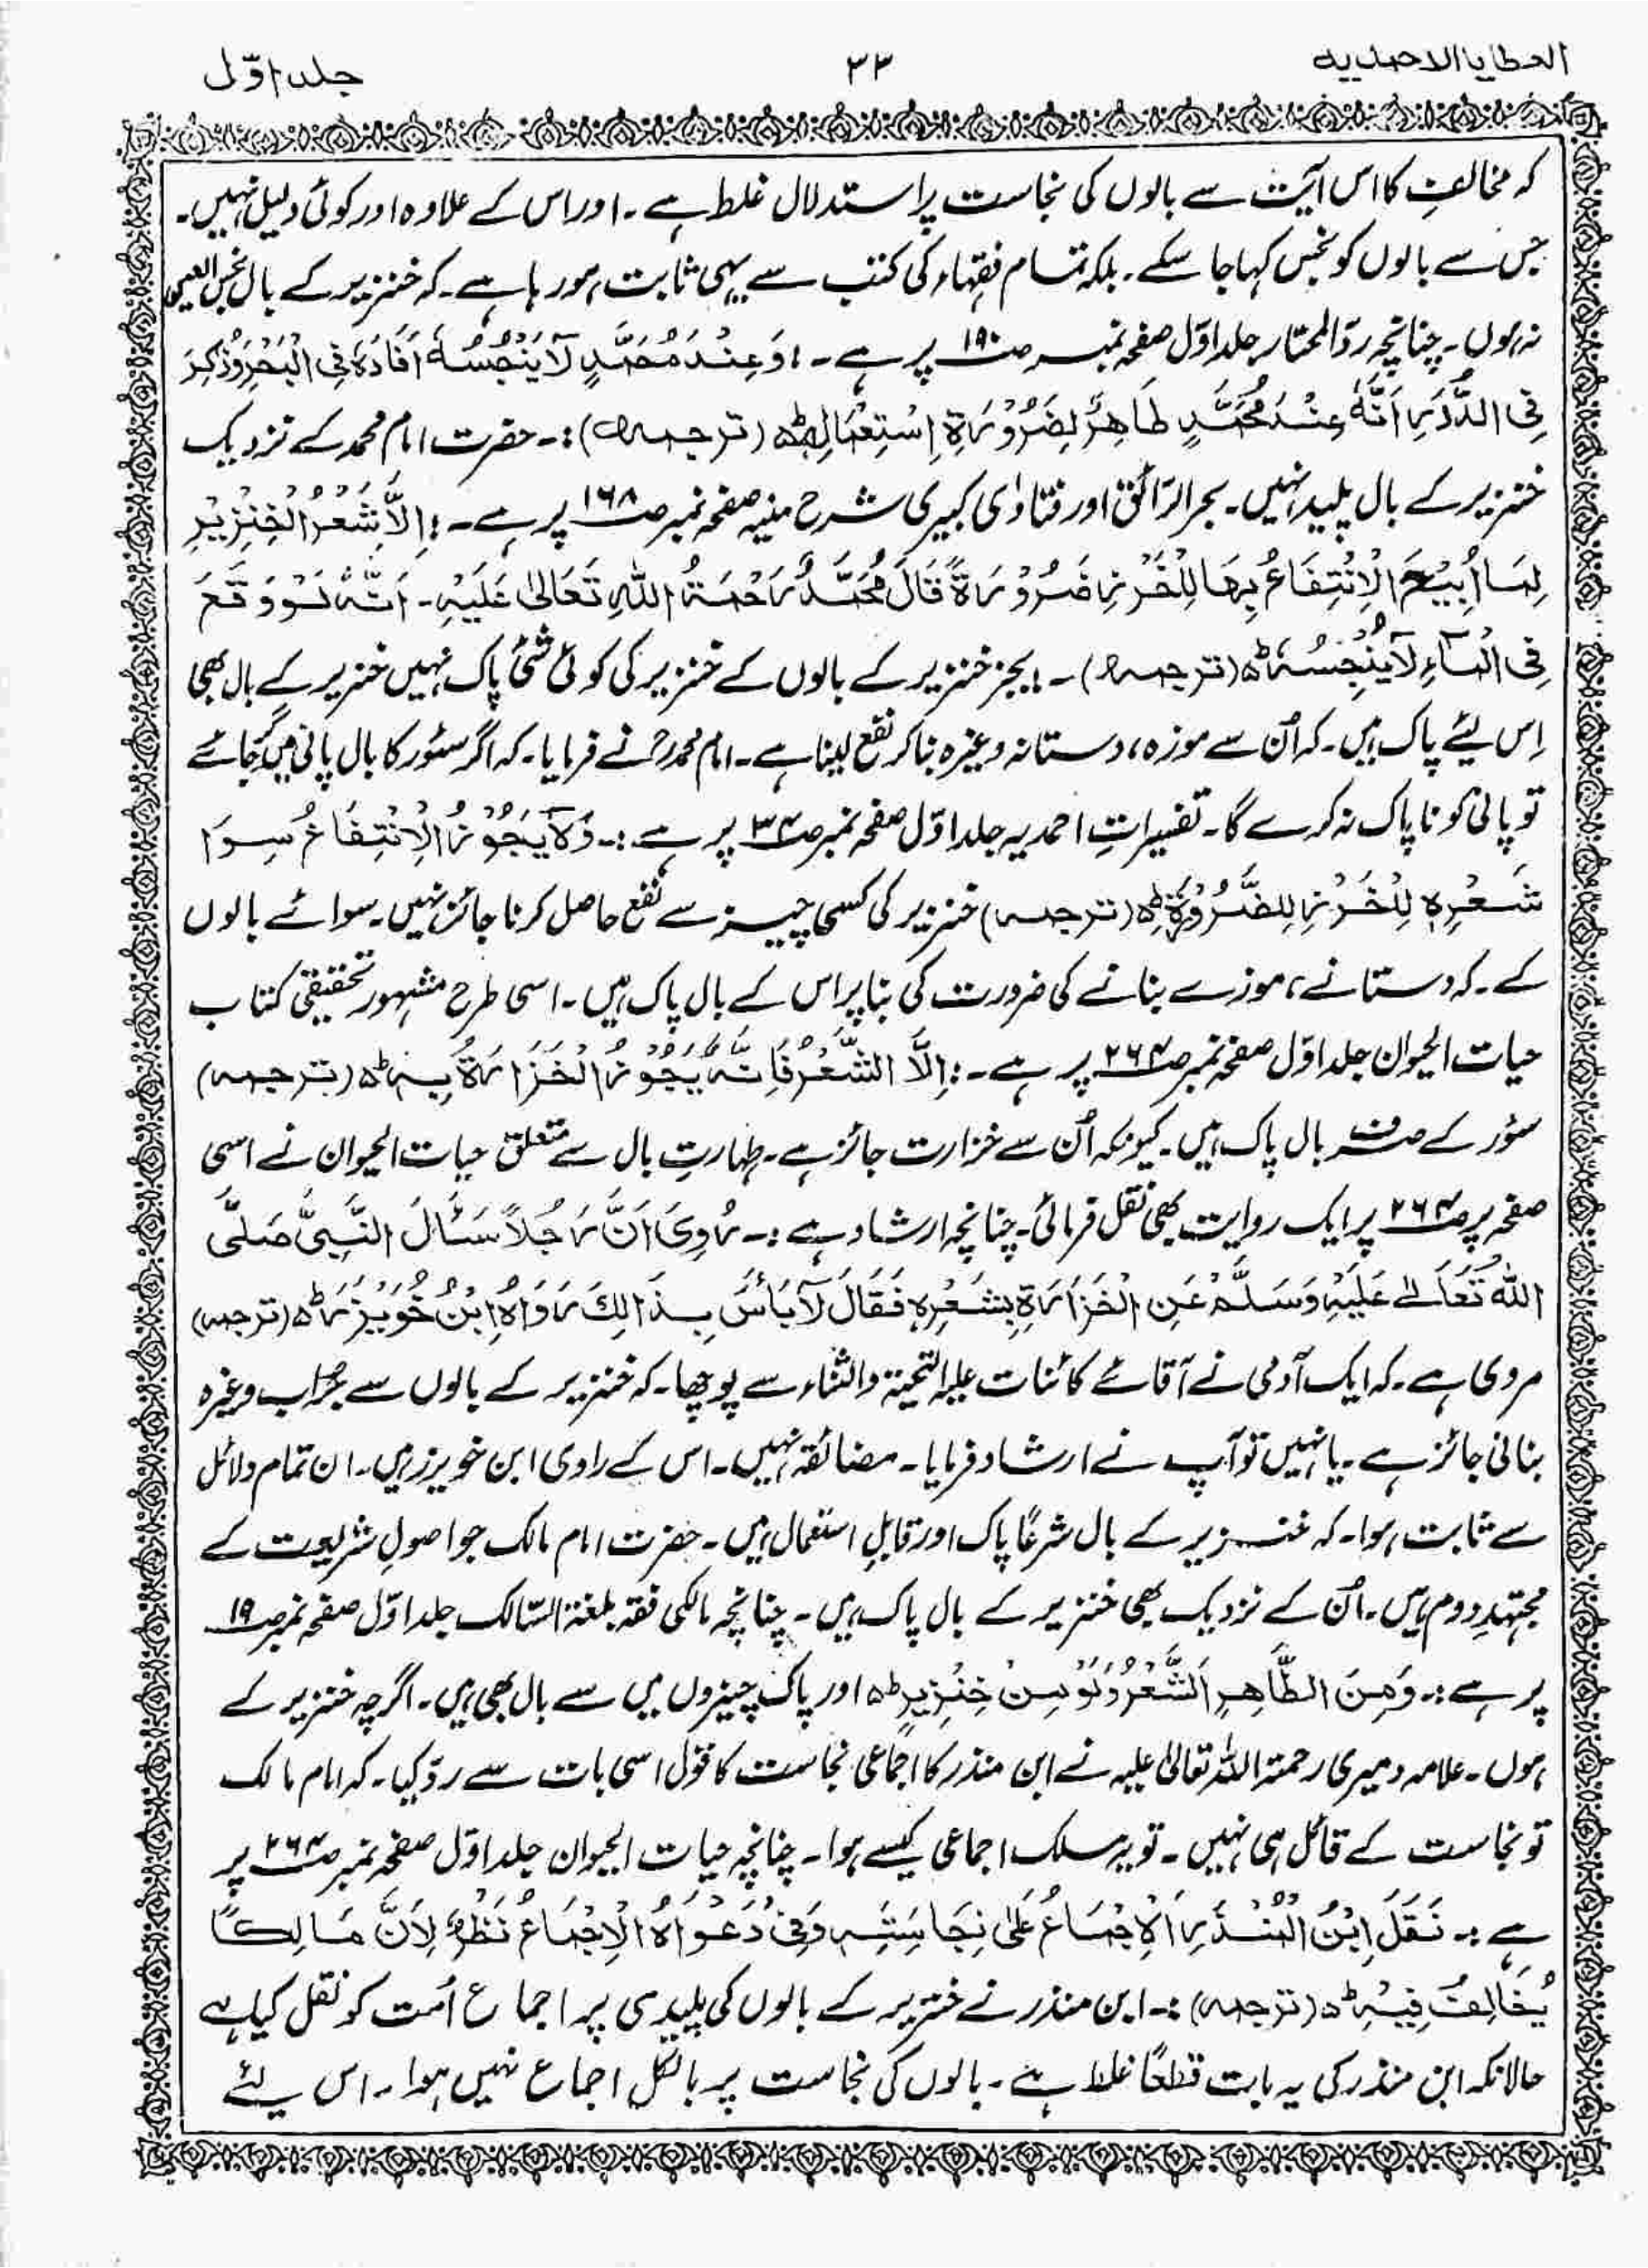 العطایا الاحمدیہ
۳۳
جلد اوّل
کہ مخالف کا اس آیت سے بالوں کی نجاست پر استدلال غلط ہے۔ اور اس کے علاوہ اور کوئی دلیل نہیں۔
جس سے بالوں کو نجس کہا جا سکے۔ بلکہ تمام فقہاء کی کتب سے یہی ثابت ہو رہا ہے۔ کہ خنزیر کے بال نجس العین
نہ ہوں۔ چنانچہ ردّ المحتار جلد اوّل صفحہ نمبر صـ۱۹۰ پر ہے۔: وَعِنْدَ مُحَمَّدٍ لَا یَنْجُسُہٗ اَفَادَہٗ فِی الْبَحْرِ وَذُکِرَ
فِی الدُّرَرِ اَنَّہٗ عِنْدَ مُحَمَّدٍ طَاهِرٌ لِضَرُوْرَةِ اِسْتِعْمَالِہٖ ط (ترجمہ):۔ حضرت امام محمد کے نزدیک
خنزیر کے بال پلید نہیں۔ بحر الرّائق اور فتاوٰی کبیری شرح منیہ صفحہ نمبر صـ۱۶۸ پر ہے۔: اِلَّا شَعْرُ الْخِنْزِیْرِ
لِمَا اُبِیْحَ الْاِنْتِفَاعُ بِهَا لِلْخَرْزِ ضَرُوْرَةً قَالَ مُحَمَّدٌ رَحْمَةُ اللهِ تَعَالٰی عَلَیْہِ۔ اَنَّہٗ لَوْ وَقَعَ
فِی الْمَاءِ لَا یُنْجِسُہٗ ط (ترجمہ)۔: بجز خنزیر کے بالوں کے خنزیر کی کوئی شئ پاک نہیں خنزیر کے بال بھی
اِس لیئے پاک ہیں۔ کہ اُن سے موزہ، دستانہ وغیرہ بنا کر نفع لینا ہے۔ امام محمدؒ نے فرمایا۔ کہ اگر سؤر کا بال پانی میں گر جائے
تو پانی کو ناپاک نہ کرے گا۔ تفسیراتِ احمدیہ جلد اوّل صفحہ نمبر صـ۳۴ پر ہے:۔ وَلَا یَجُوْزُ الْاِنْتِفَاعُ سِوَا
شَعْرِہٖ لِلْخَرْزِ لِلضَّرُوْرَةِ ط (ترجمہ) خنزیر کی کسی چیز سے نفع حاصل کرنا جائز نہیں۔ سوائے بالوں
کے۔ کہ دستانے، موزے بنانے کی ضرورت کی بنا پر اس کے بال پاک ہیں۔ اسی طرح مشہور تحقیقی کتاب
حیات الحیوان جلد اوّل صفحہ نمبر صـ۲۶۴ پر ہے۔: اِلَّا الشَّعْرُ فَاِنَّہٗ یَجُوْزُ الْخَزَارَةُ بِہٖ ط (ترجمہ)
سؤر کے صرف بال پاک ہیں۔ کیونکہ اُن سے خزارت جائز ہے۔ طہارتِ بال سے متعلق حیات الحیوان نے اسی
صفحہ پر صـ۲۶۴ پر ایک روایت بھی نقل فرمائی۔ چنانچہ ارشاد ہے:۔ رُوِیَ اَنَّ رَجُلًا سَئَالَ النَّبِیَّ صَلَّی
اللهُ تَعَالٰے عَلَیْہِ وَسَلَّمَ عَنِ الْخَزَارَةِ بِشَعْرِہٖ فَقَالَ لَا بَأْسَ بِذَالِكَ رَوَاہُ اِبْنُ خُوَیْزَرَ ط (ترجمہ)
مروی ہے۔ کہ ایک آدمی نے آقائے کائنات علیہ التحیۃ والثناء سے پوچھا۔ کہ خنزیر کے بالوں سے جُراب وغیرہ
بنانی جائز ہے۔ یا نہیں تو آپ نے ارشاد فرمایا۔ مضائقہ نہیں۔ اس کے راوی ابن خویزر ہیں۔ ان تمام دلائل
سے ثابت ہوا۔ کہ خنزیر کے بال شرعًا پاک اور قابلِ استعمال ہیں۔ حضرت امام مالک جو اصولِ شریعت کے
مجتہدِ دوم ہیں۔ اُن کے نزدیک بھی خنزیر کے بال پاک ہیں۔ چنانچہ مالکی فقہ بلغۃ السّالک جلد اوّل صفحہ نمبر صـ۱۹
پر ہے:۔ وَمِنَ الطَّاهِرِ اَلشَّعْرُ وَلَوْ مِنْ خِنْزِیْرٍ ط اور پاک چیزوں میں سے بال بھی ہیں۔ اگرچہ خنزیر کے
ہوں۔ علامہ دمیری رحمۃ اللہ تعالیٰ علیہ نے ابن منذر کا اجماعی نجاست کا قول اسی بات سے ردّ کیا۔ کہ امام مالک
تو نجاست کے قائل ہی نہیں۔ تو یہ مسلک اجماعی کیسے ہوا۔ چنانچہ حیات الحیوان جلد اوّل صفحہ نمبر صـ۲۶۴ پر
ہے:۔ نَقَلَ اِبْنُ الْمُنْذَرِ اَلْاِجْمَاعُ عَلٰی نِجَاسَتِہٖ وَفِیْ دَعْوَاہُ الْاِجْمَاعُ نَظْرٌ لِاَنَّ مَالِکًا
یُخَالِفُ فِیْہِ ط (ترجمہ):۔ ابن منذر نے خنزیر کے بالوں کی پلیدی پر اجماع اُمت کو نقل کیا ہے
حالانکہ ابن منذر کی یہ بات قطعًا غلط ہے۔ بالوں کی نجاست پر بالکل اجماع نہیں ہوا۔ اس لئے